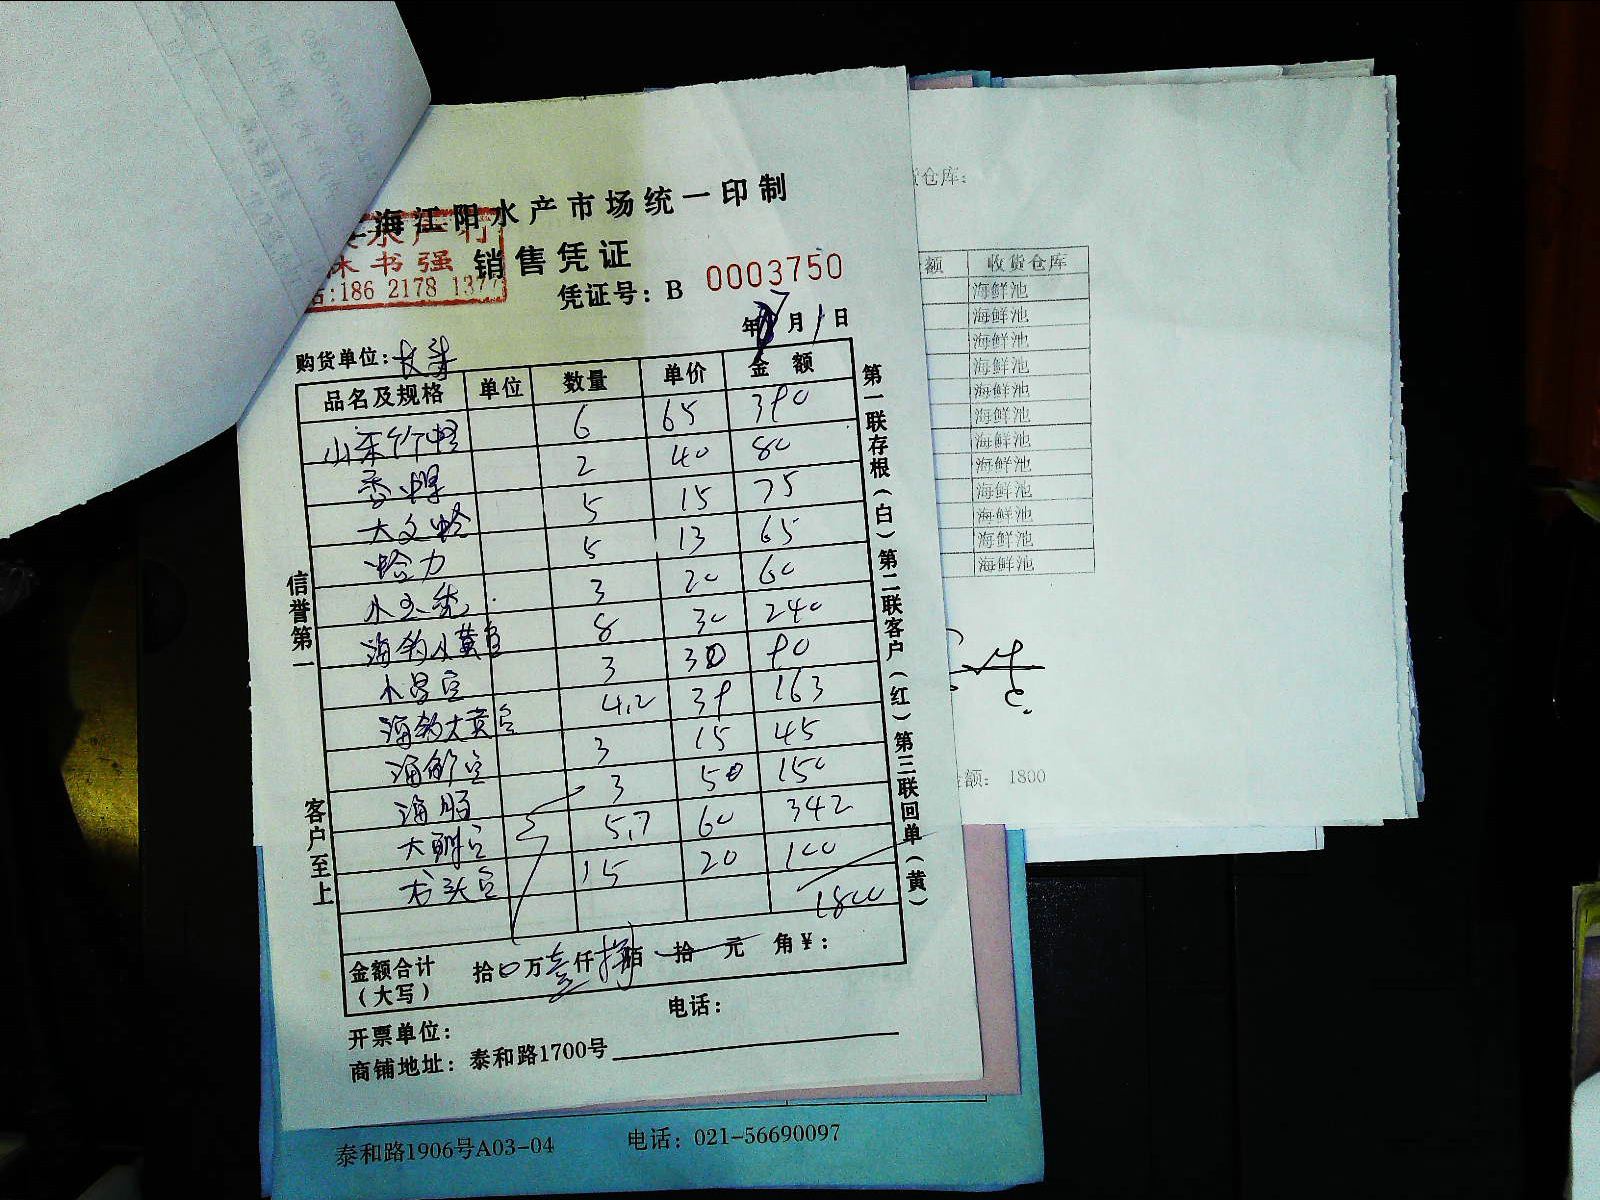 海江阳水产市场统一印制
水产行
书强
:186 2178 1377
销售凭证
凭证号：B 0003750
年7月1日
购货单位：
品名及规格 单位 数量 单价 金额
山东竹蛏 6 65 390
香螺 2 40 80
大文蛤 5 15 75
蛤力 5 13 65
小玉秃 3 20 60
海钓小黄鱼 8 30 240
小昌鱼 3 30 90
海钓大黄鱼 4.2 39 163
海鲈鱼 3 15 45
海肠 3 50 150
大鲷鱼 5.7 60 342
鱼 15 20 100
1800
金额合计（大写） 拾0万壹仟捌佰 拾 元 角￥：
开票单位：
电话：
商铺地址：泰和路1700号
信誉第一
客户至上
第一联存根（白）第二联客户（红）第三联回单（黄）
泰和路1906号A03-04 电话：021-56690097
仓库：
额 收货仓库
海鲜池
海鲜池
海鲜池
海鲜池
海鲜池
海鲜池
海鲜池
海鲜池
海鲜池
海鲜池
海鲜池
海鲜池
额：1800